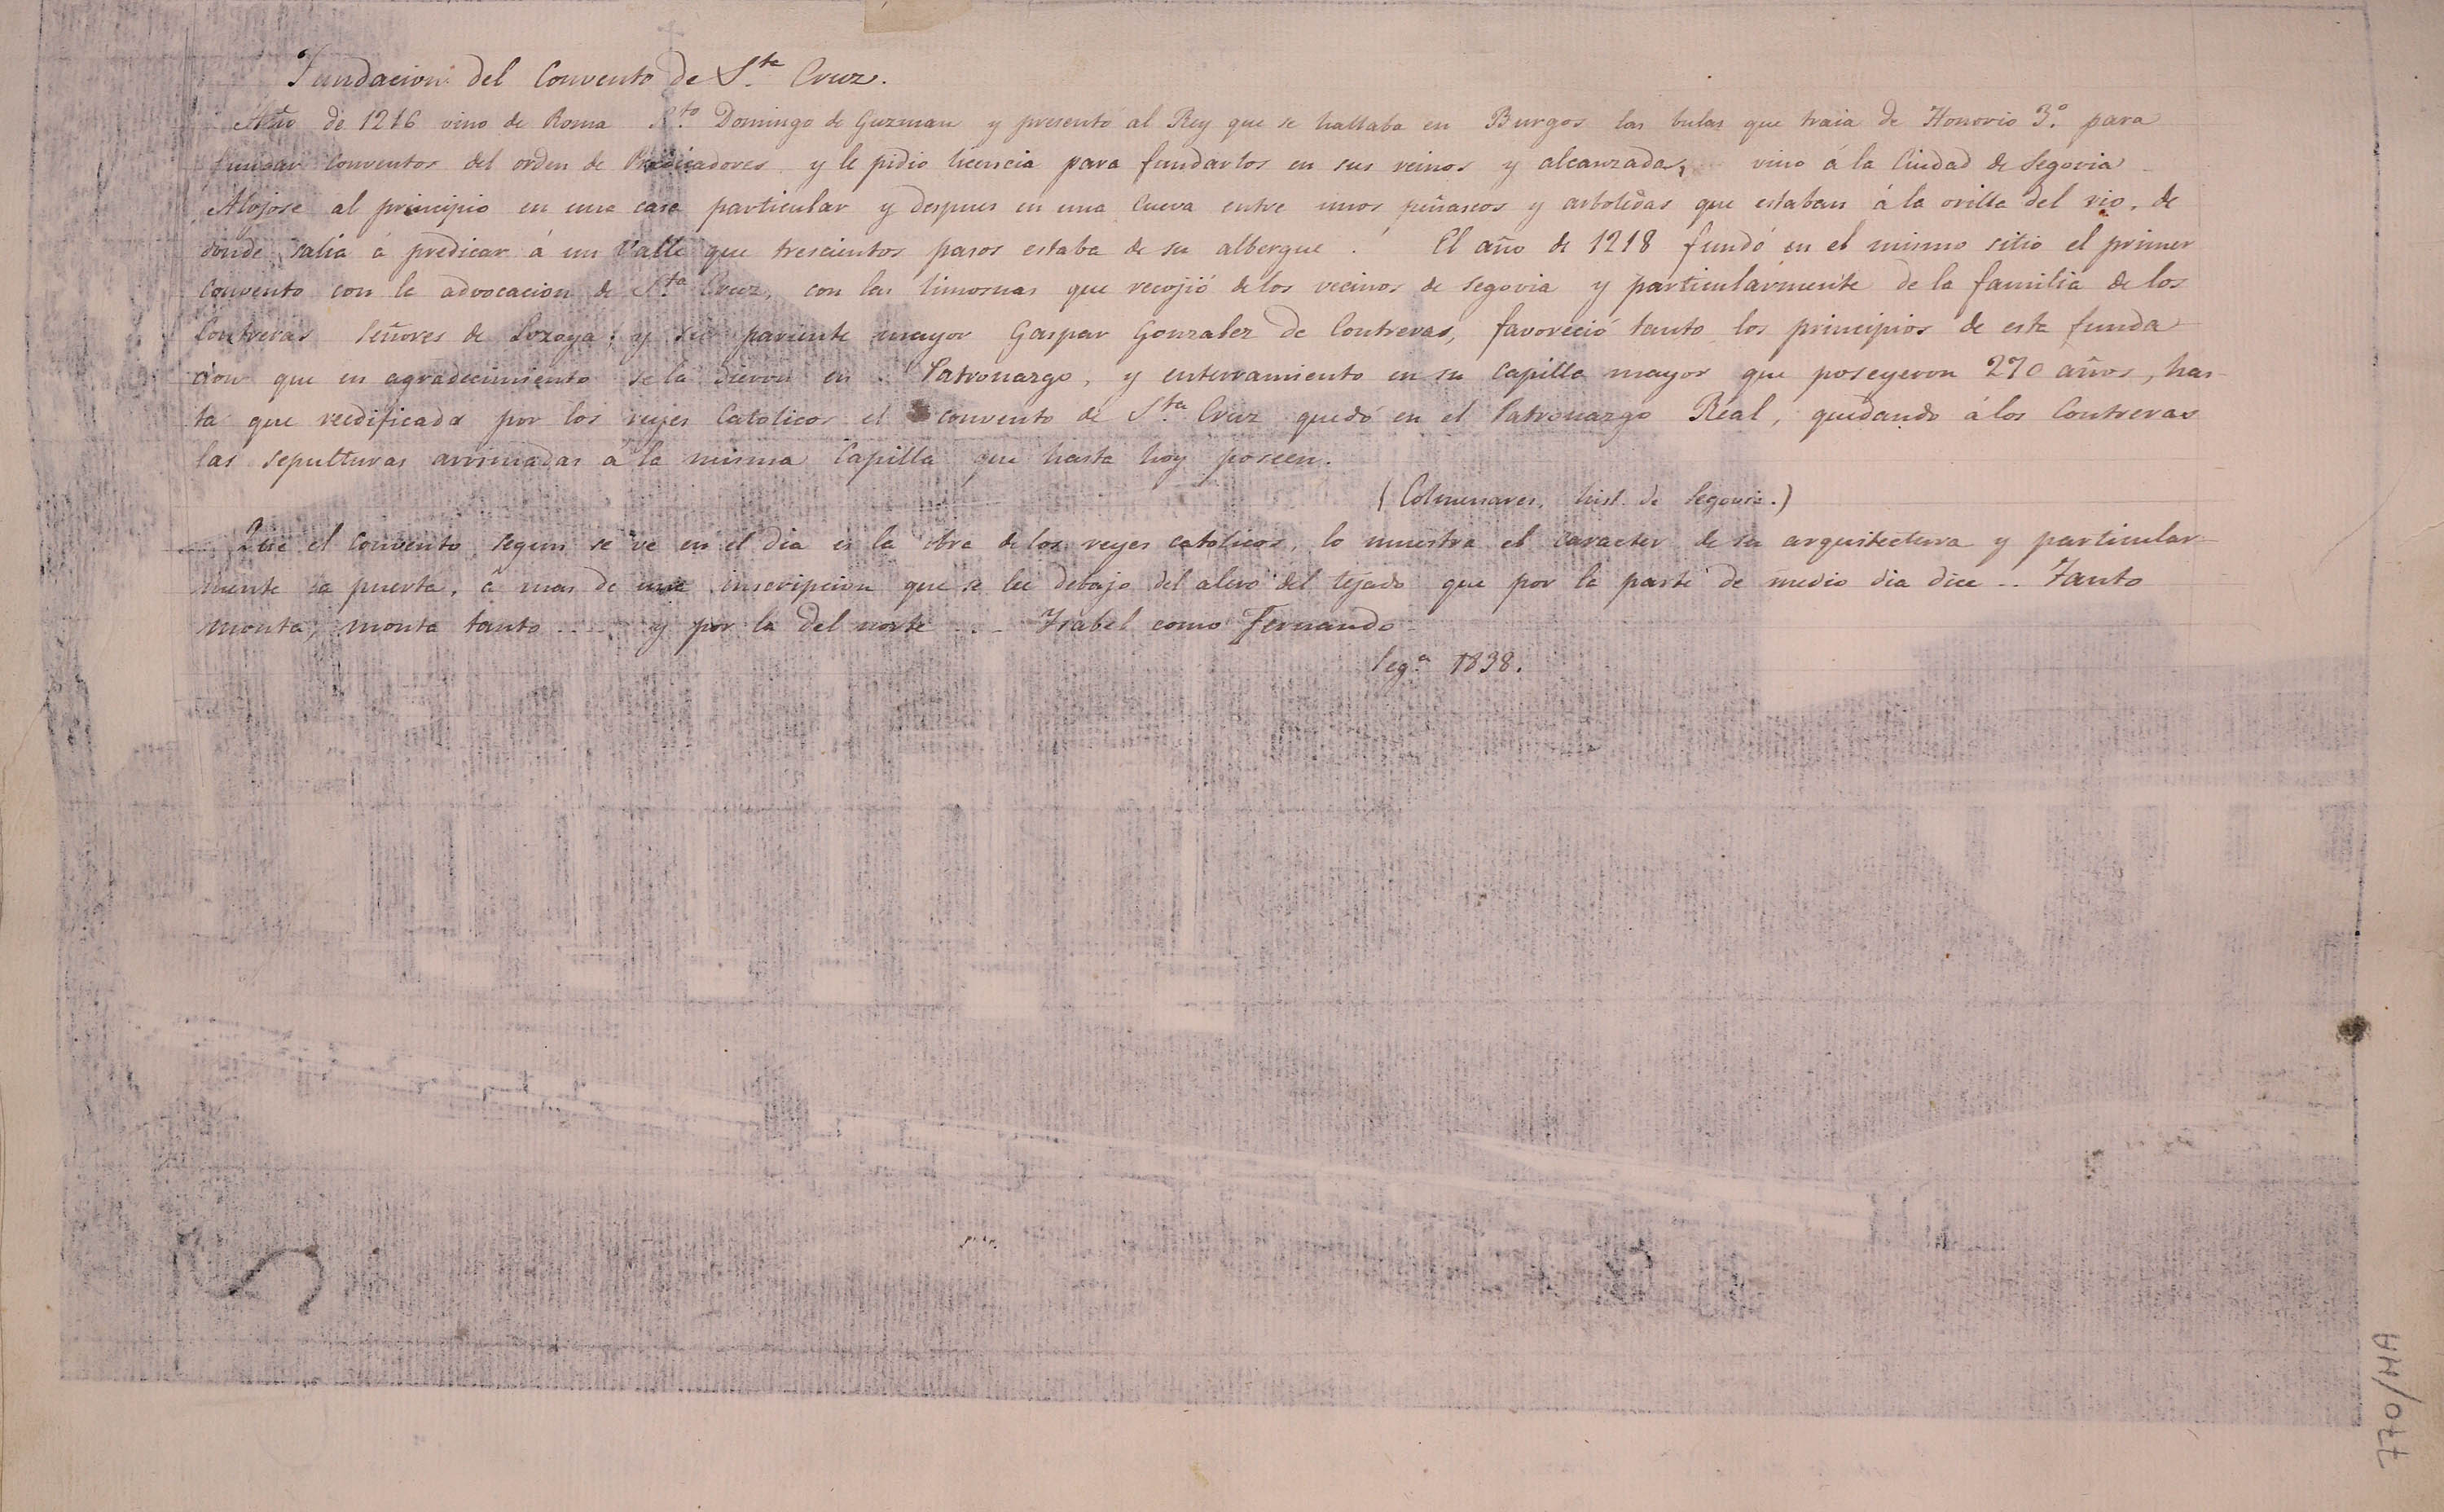 Fundacion del Convento de S.ta Cruz.
Año de 1216 vino de Roma S.to Domingo de Guzman y presentó al Rey que se hallaba en Burgos las bulas que traia de Honorio 3.o para
fundar conventos del orden de Predicadores y le pidio licencia para fundarlos en sus reinos y alcanzada, vino á la Ciudad de Segovia
Alojose al principio en una casa particular y despues en una Cueva entre unos peñascos y arboledas que estaban á la orilla del rio, de
donde salia á predicar á un Valle que trescientos pasos estaba de su albergue. El año de 1218 fundó en el mismo sitio el primer
Convento con la advocacion de S.ta Cruz, con las limosnas que recojió de los vecinos de Segovia y particularmente de la familia de los
Contreras Señores de Lozoya; y su pariente mayor Gaspar Gonzalez de Contreras, favoreció tanto los principios de esta funda
cion que en agradecimiento se la dieron en Patronazgo, y enterramiento en su Capilla mayor que poseyeron 270 años, has-
ta que reedificada por los reyes Catolicos el convento de S.ta Cruz quedó en el Patronazgo Real, quedando á los Contreras
las sepulturas arrimadas á la misma Capilla que hasta hoy poseen.
(Colmenares, hist. de Segovia.)
Que el Convento segun se ve en el dia es la obra de los reyes catolicos, lo muestra el caracter de su arquitectura y particular-
mente la puerta, á mas de una inscripcion que se lee debajo del alero del tejado que por la parte de medio dia dice .. Tanto
monta, monta tanto .... y por la del norte ... Isabel como Fernando.
Seg.a 1838.
770/HA